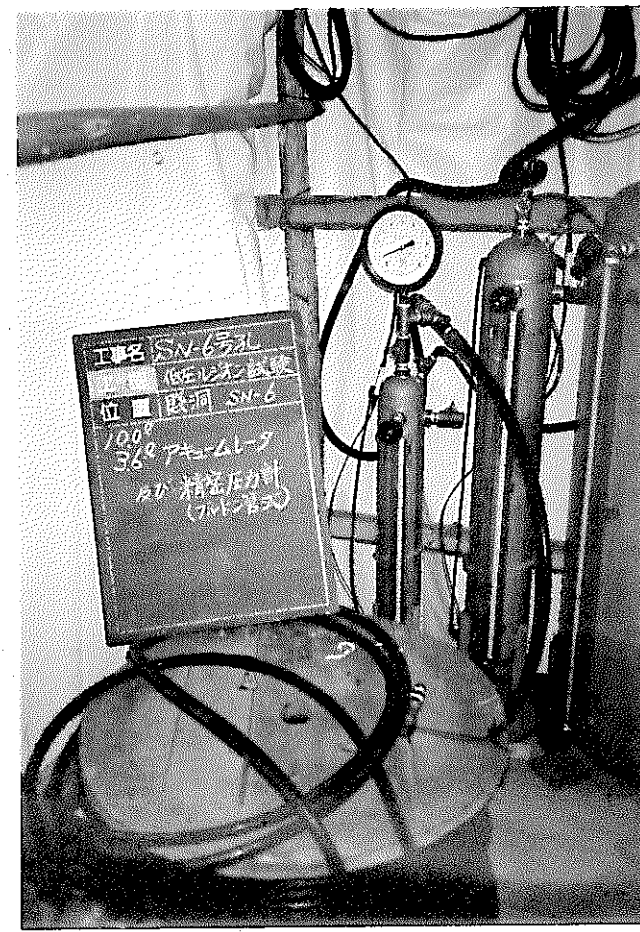 工事名 SN-6号孔
低圧ルジオン試験
位置 SN-6
100ℓ
36ℓ アキュームレータ
及び 精密圧力計
(ブルドン管式)